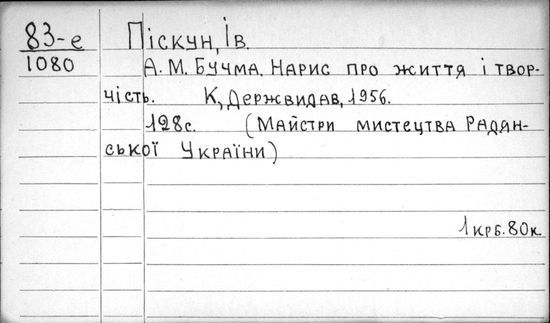 83-е Піскун, Ів.
1080 А. М. Бучма. Нарис про життя і твор-
чість. К, Держвидав, 1956.
128с. (Майстри мистецтва Радян-
ської України)
1крб.80к.